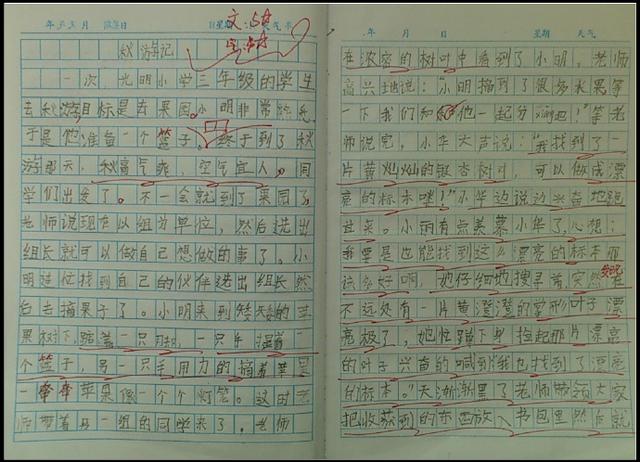 年 月 日 星期 天气
秋游记
一次,光明小学三年级的学生
去秋游目标是去果园。小明非常
于是他准备一个篮子。终于到了秋
游那天,秋高气爽,空气宜人,同
学们出发了。不一会就到了果园了,
老师说现在以组为单位,然后选出
组长就可以做自己想做的事了。小
明赶忙找到自己的伙伴选出组长然
后去摘果子了。小明来到矮矮的苹
果树下,踮着一只脚,一只手提着一
个篮子,另一只手用力的摘着苹果
一 苹果像一个个灯笼。这时老
师带着另一组的同学来了。老师
年 月 日 星期 天气
在浓密的树叶中看到了小明,老师
高兴地说:“小明摘到了很多水果等
一下我们和他一起分 吧!”等老
师说完,小华大声说:“我找到了一
片黄灿灿的银杏树叶,可以做成漂
亮的标本哩!”小华边说边兴奋地跑
过来。小丽有点羡慕小华了,心想:
我要是也能找到这么漂亮的标本那
该多好啊。她仔细地搜寻着,突然 发现
不远处有一片黄澄澄的掌形叶子漂
亮极了,她忙蹲下身捡起那片漂亮
的叶子兴奋的喊到“我也找到了漂亮
的标本。”天渐渐黑了老师带领大家
把收获到的东西放入书包里然后就